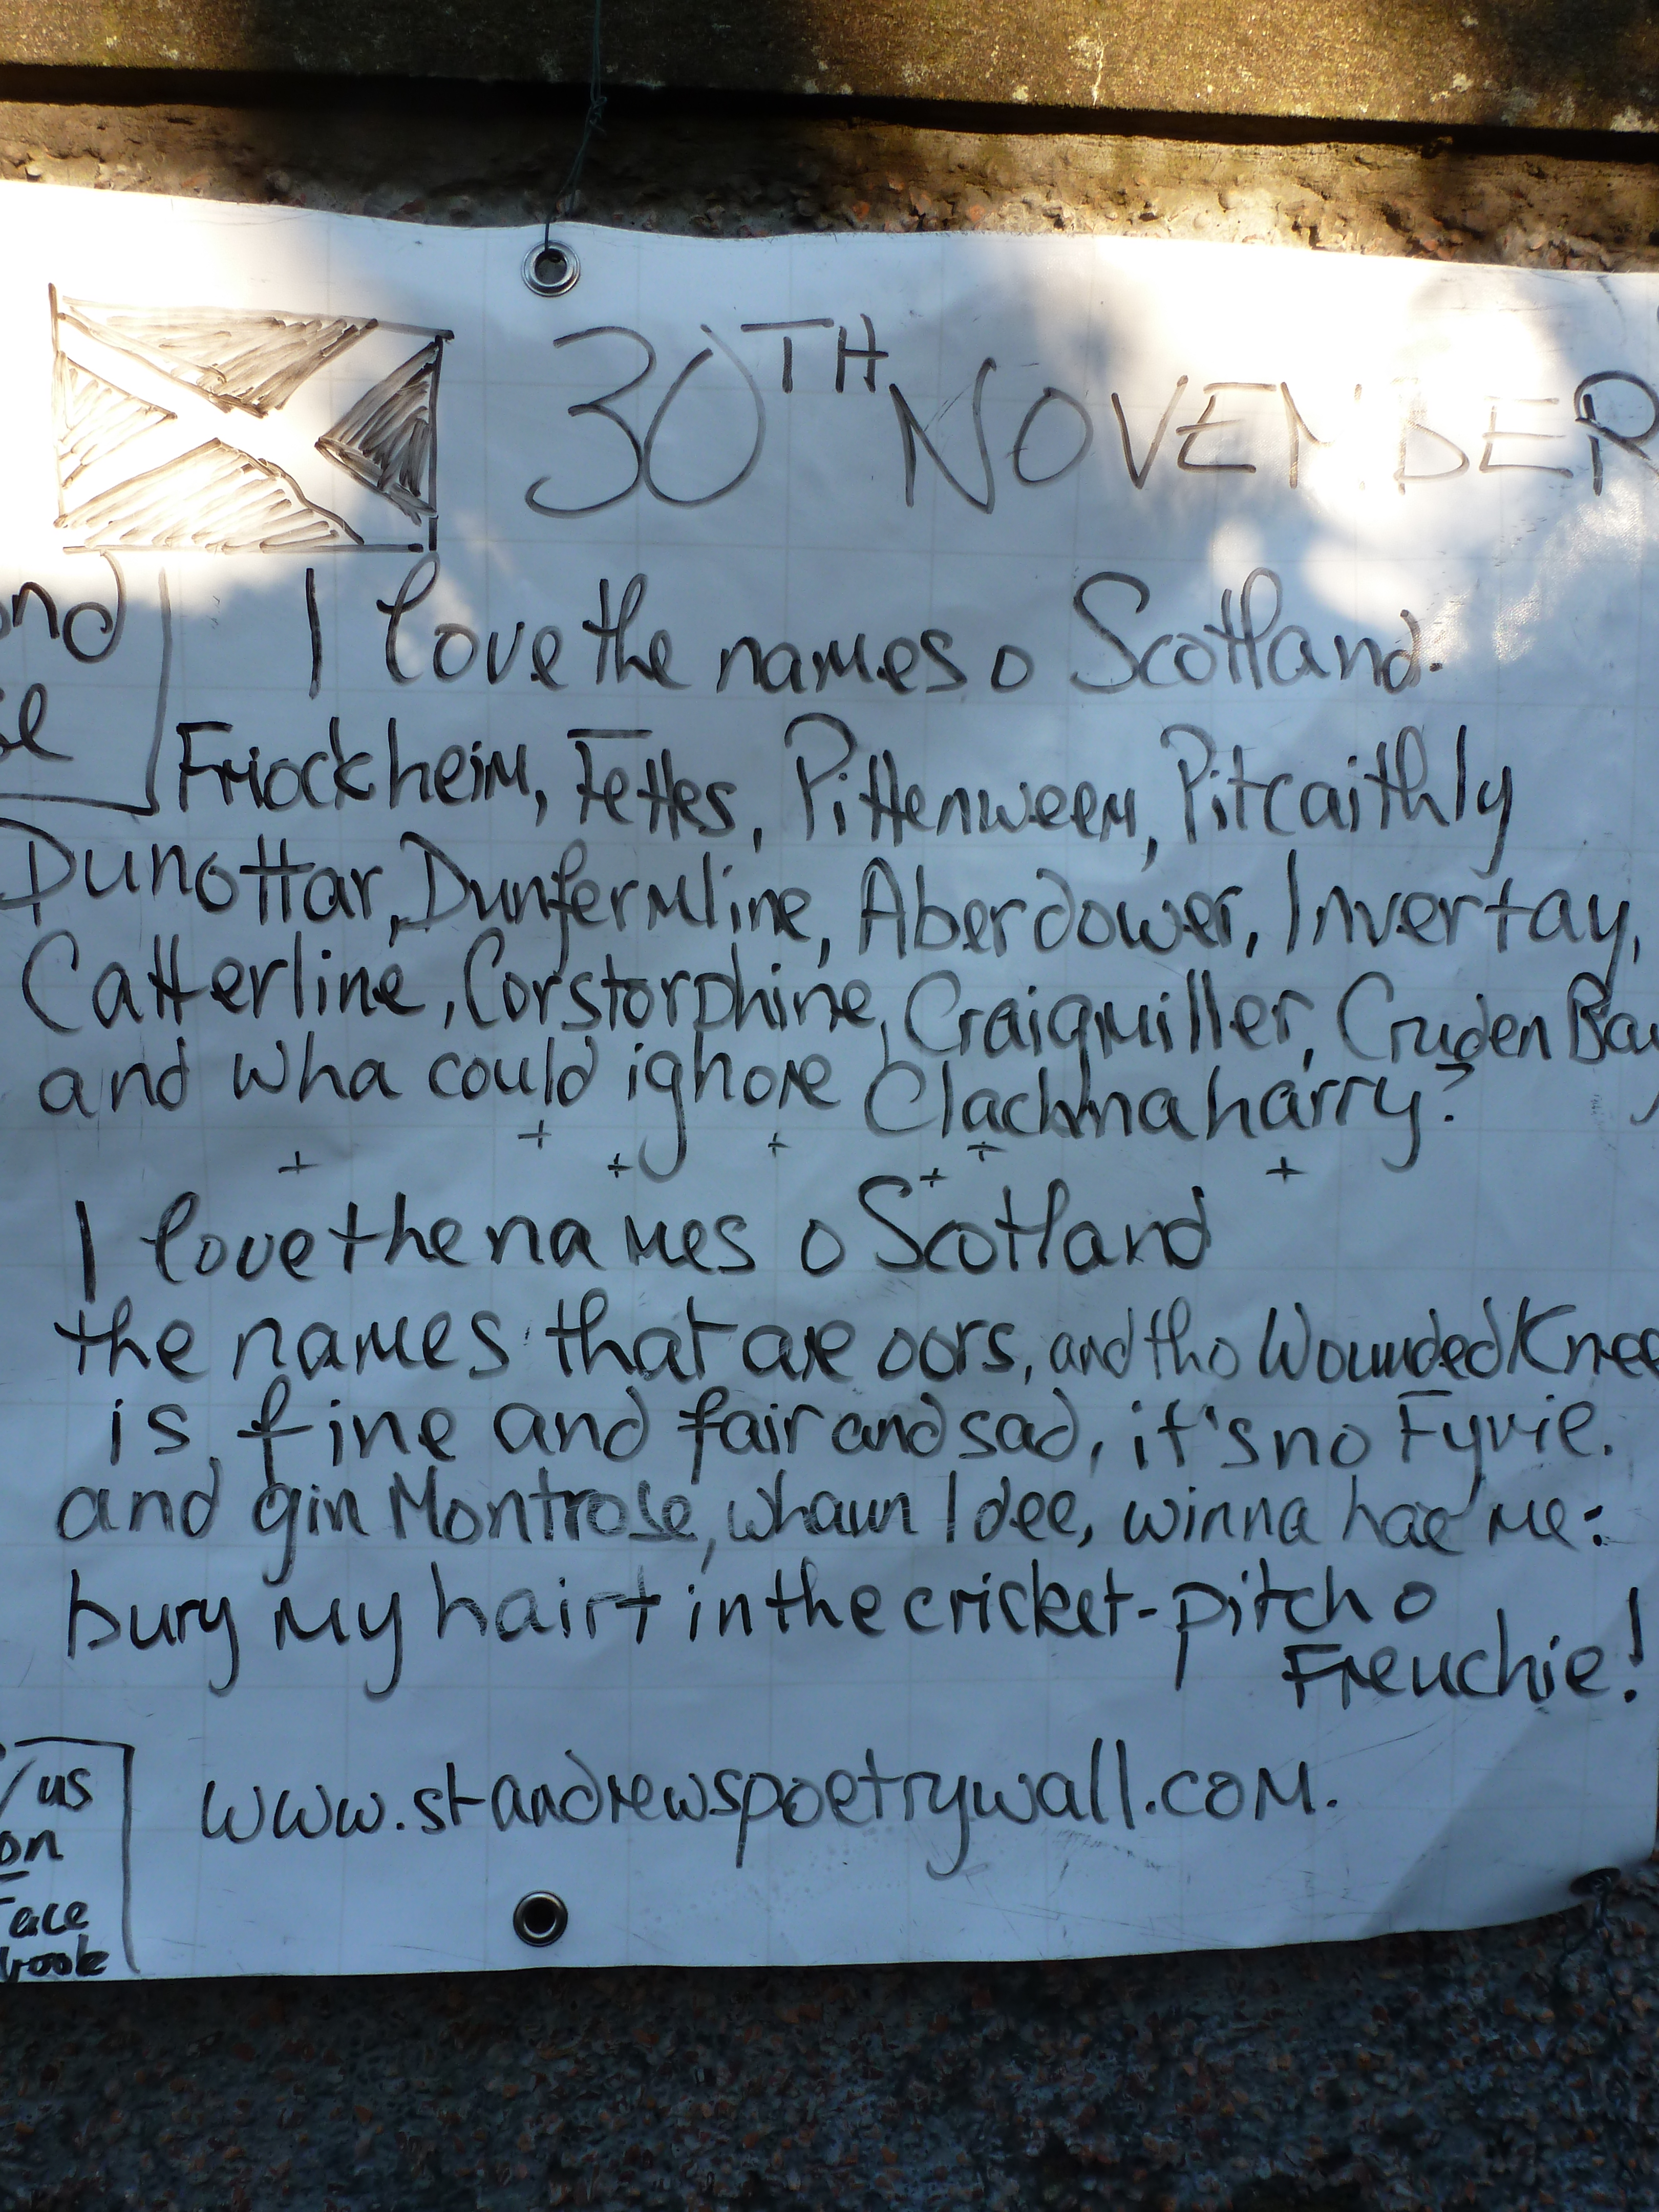 30TH NOVEMBER
I love the names o Scotland.
Friockheim, Fettes, Pittenweem, Pitcaithly
Dunottar, Dunfermline, Aberdower, Invertay,
Catterline, Corstorphine, Craigmiller, Cruden Bay
and wha could ignore Clachnaharry?
I love the names o Scotland
the names that are oors, and tho Wounded Knee
is fine and fair and sad, it's no Fyvie.
and gin Montrose, whaun I dee, winna hae me:
bury my hairt in the cricket-pitch o
Freuchie!
www.standrewspoetrywall.com.
/us
on
Face
book